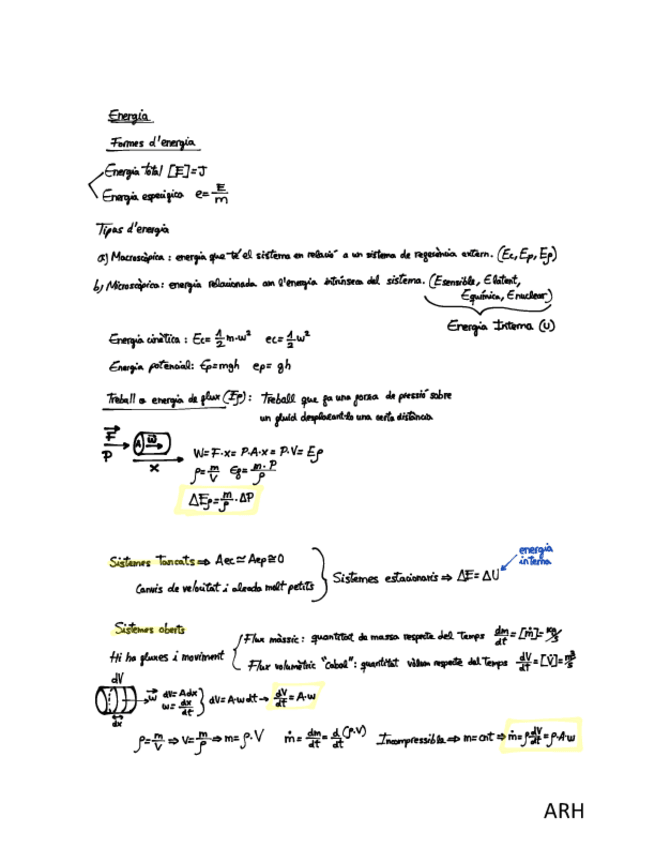 Energia
Formes d'energia
Energia total [E]=J
Energia específica e=E/m
Tipus d'energia
a) Macroscòpica: energia que té el sistema en relació a un sistema de referència extern. (Ec, Ep, Ef)
b) Microscòpica: energia relacionada amb l'energia intrínseca del sistema. (Esensible, Elatent, Equímica, Enuclear)
Energia Interna (U)
Energia cinètica: Ec=1/2 m·w² ec=1/2 w²
Energia potencial: Ep=mgh ep=gh
Treball o energia de flux (Ef): Treball que fa una força de pressió sobre
un fluid desplaçant-lo una certa distància
F
P
A w
x
W=F·x=P·A·x=P·V=Ef
ρ=m/V Ef=m·P/ρ
ΔEf=m/ρ·ΔP
Sistemes Tancats ⇒ Δec≃Δep≅0
Canvis de velocitat i alçada molt petits
Sistemes estacionaris ⇒ ΔE=ΔU
energia
interna
Sistemes oberts
Hi ha fluxes i moviment
Flux màssic: quantitat de massa respecte del temps dm/dt=[ṁ]=kg/s
Flux volumètric "cabal": quantitat volum respecte del temps dV/dt=[V̇]=m³/s
dV
dx
w
dV=Adx
w=dx/dt
dV=A·w dt→ dV/dt=A·w
ρ=m/V ⇒ V=m/ρ ⇒ m=ρ·V ṁ=dm/dt=d/dt(ρ·V) Incompressible ⇒ m=cnt ⇒ ṁ=ρdV/dt=ρ·A·w
ARH